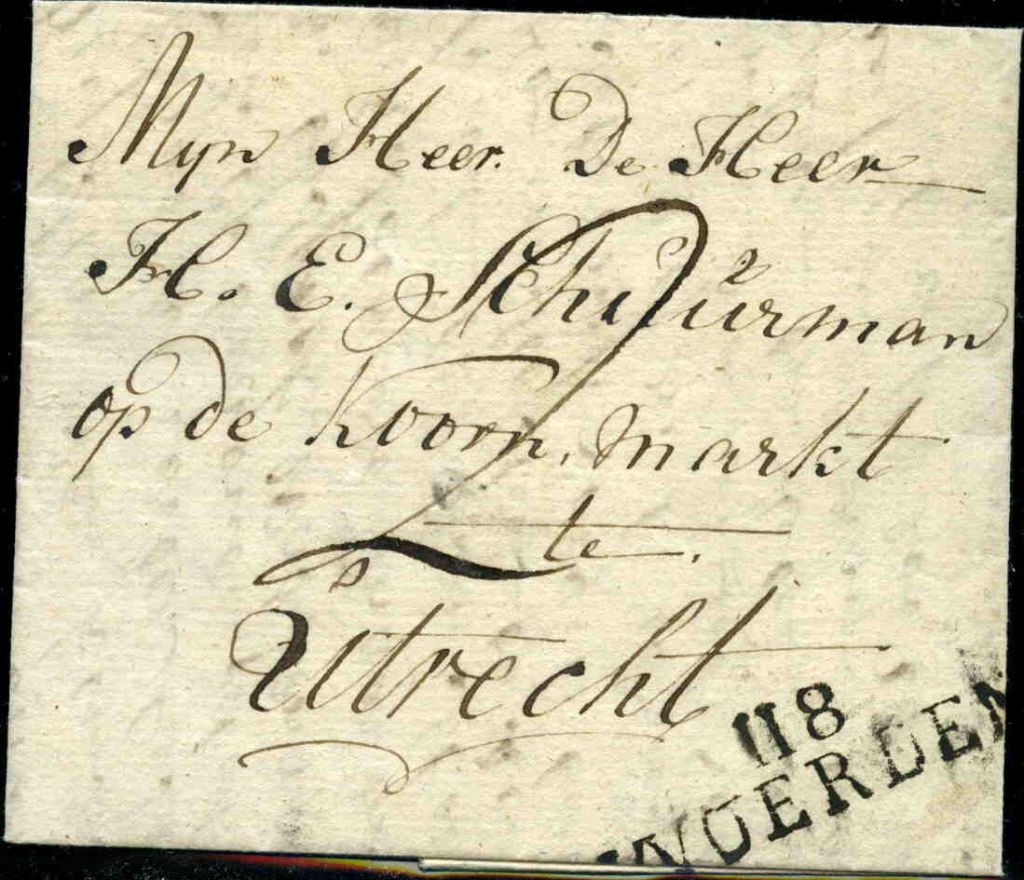 Mijn Heer. De Heer
H. E. Schuürman
op de Koorn, markt
te.
Utrecht
118
WOERDEN
2